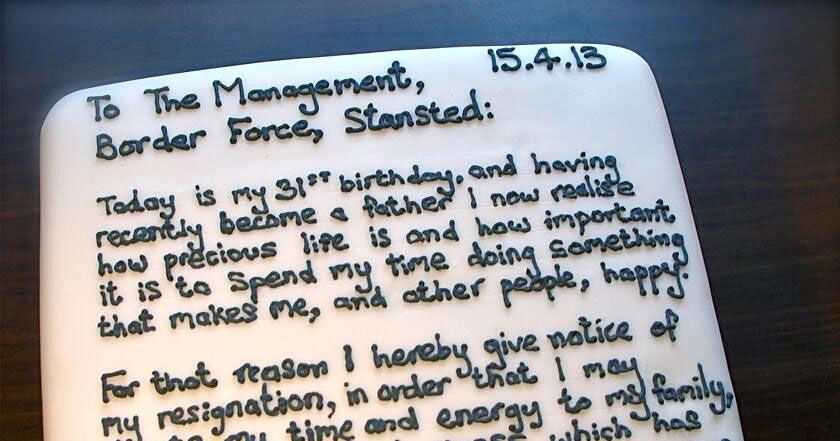 15.4.13
To The Management,
Border Force, Stansted:
Today is my 31ST birthday, and having
recently become a father I now realise
how precious life is and how important
it is to spend my time doing something
that makes me, and other people, happy.
For that reason I hereby give notice of
my resignation, in order that I may
my time and energy to my family,
which has